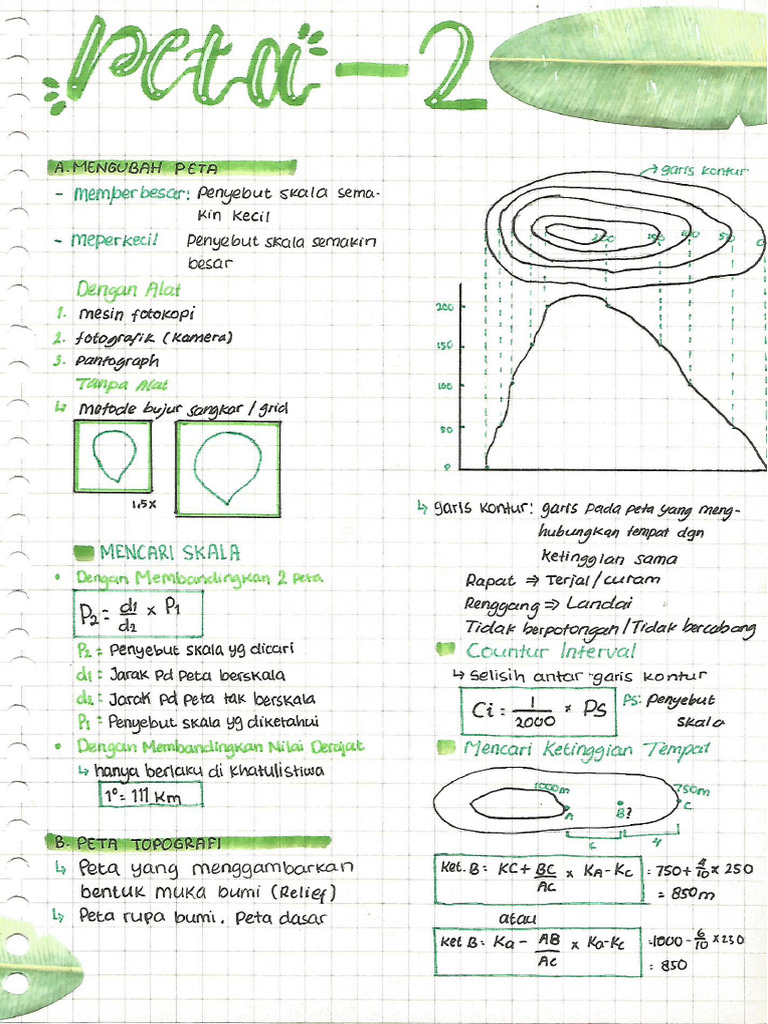 Peta - 2
A. MENGUBAH PETA
- Memperbesar: Penyebut skala sema-
kin kecil
- Meperkecil Penyebut skala semakin
besar
Dengan Alat
1. mesin fotokopi
2. fotografik (kamera)
3. pantograph
Tanpa Alat
↳ metode bujur sangkar / grid
1.5x
MENCARI SKALA
• Dengan Membandingkan 2 peta
P2 = d1/d2 x P1
P2 = Penyebut skala yg dicari
d1 = Jarak pd peta berskala
d2 = Jarak pd peta tak berskala
P1 = Penyebut skala yg diketahui
• Dengan Membandingkan Nilai Derajat
↳ hanya berlaku di khatulistiwa
1° = 111 km
B. PETA TOPOGRAFI
↳ Peta yang menggambarkan
bentuk muka bumi (Relief)
↳ Peta rupa bumi, Peta dasar
→ garis kontur
200 150 100 50 0
200
150
100
50
0
↳ garis kontur: garis pada peta yang meng-
hubungkan tempat dgn
ketinggian sama
Rapat ⇒ Terjal/curam
Renggang ⇒ Landai
Tidak berpotongan/Tidak bercabang
Countur Interval
↳ selisih antar garis kontur
Ci = 1/2000 x PS PS: Penyebut
skala
Mencari Ketinggian Tempat
1000m 750m
A B? C
6 4
Ket. B = KC + BC/AC x KA-KC = 750 + 4/10 x 250
= 850 m
atau
Ket B = Ka - AB/AC x Ka-Kc = 1000 - 6/10 x 250
= 850